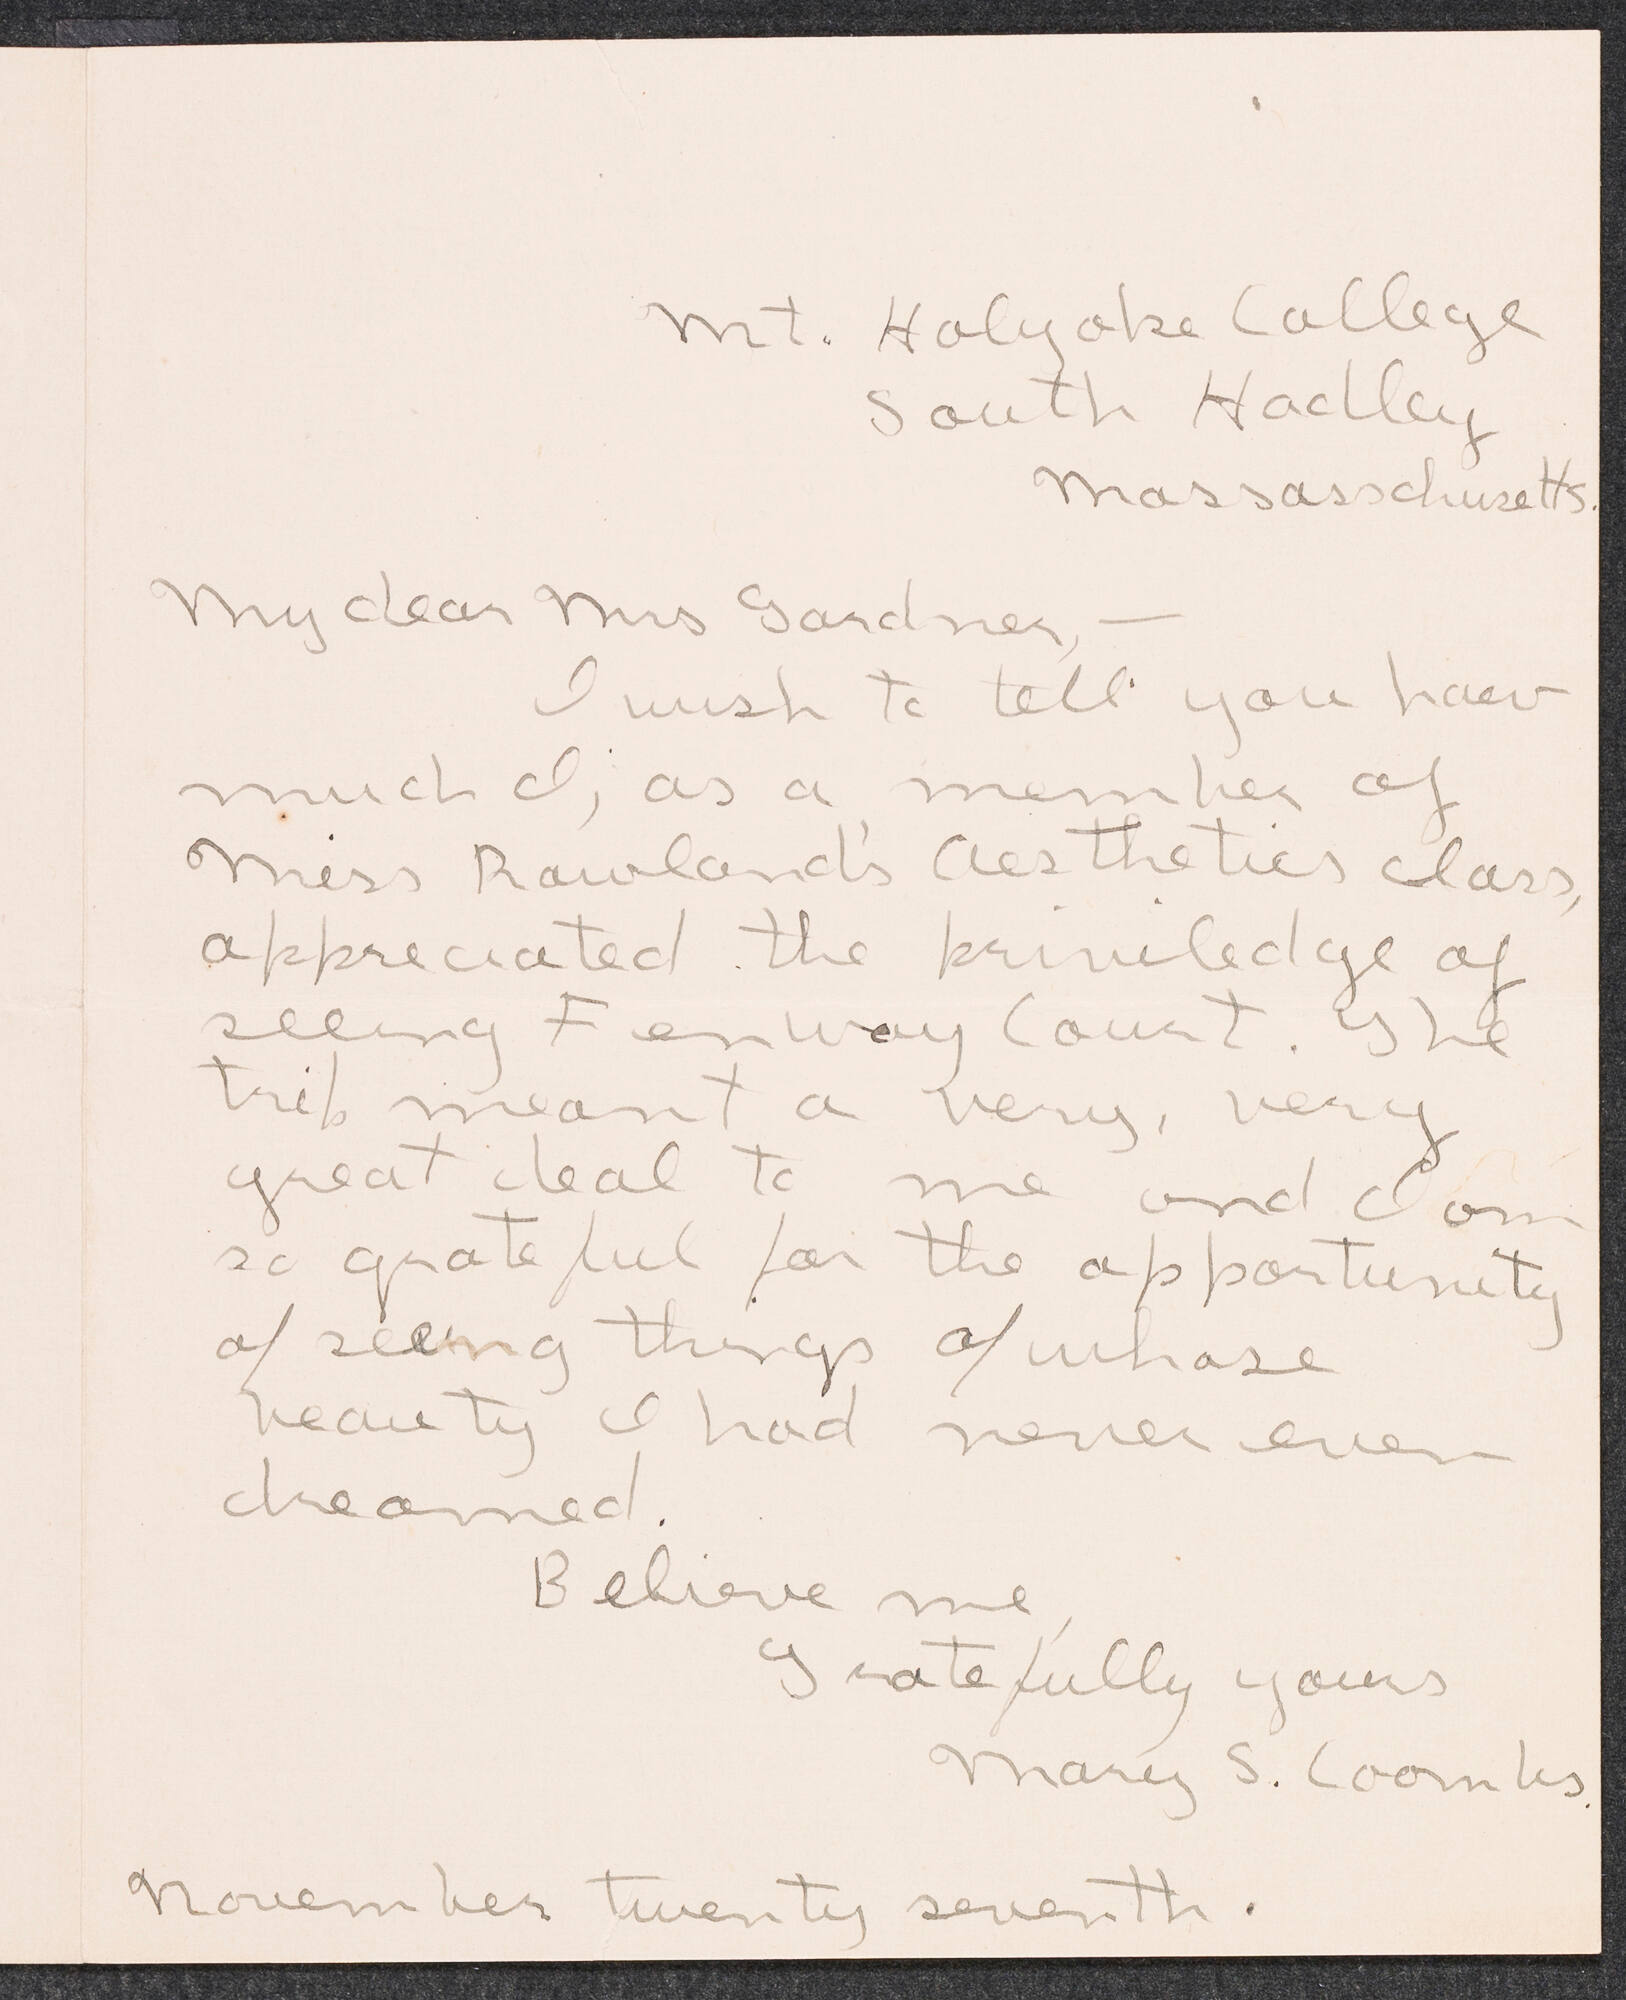 Mt. Holyoke College
South Hadley
Massasschusetts.
My dear Mrs Gardner, —
I wish to tell you how
much I, as a member of
Miss Rowland's Aesthetics class,
appreciated the priviledge of
seeing Fenway Court. The
trip meant a very, very
great deal to me and I am
so grateful for the opportunity
of seeing things of whose
beauty I had never even
dreamed.
Believe me,
Gratefully yours
Mary S. Coombs.
November twenty seventh.